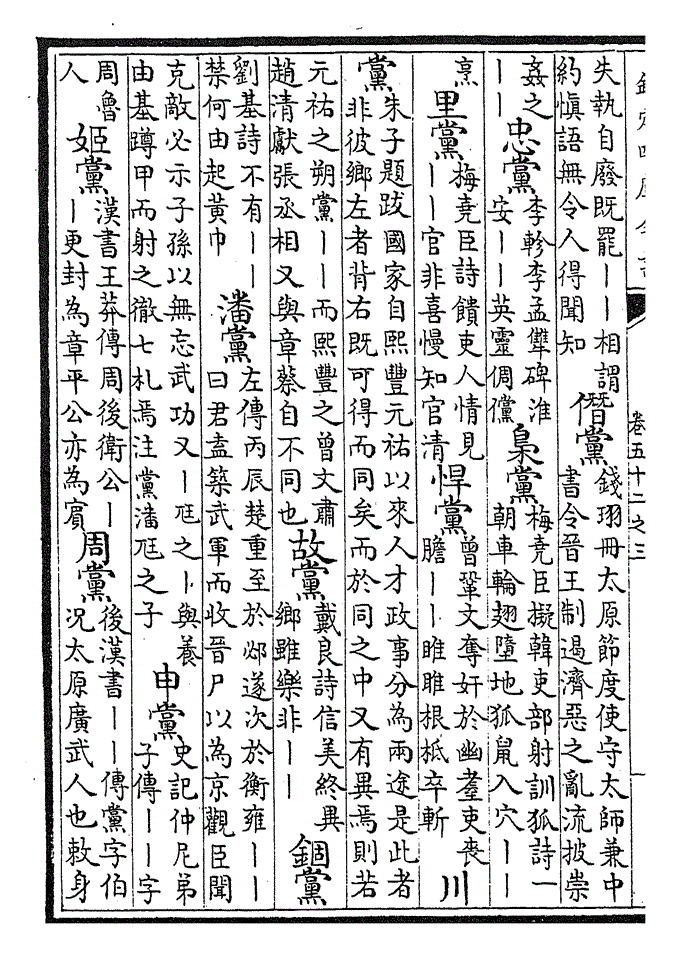 欽定四庫全書
卷五十二之三
失執自廢既罷｜｜相謂
約慎語無令人得聞知
僭黨
錢珝冊太原節度使守太師兼中
書令晉王制遏濟惡之亂流披崇
姦之
｜｜
忠黨
李軫李孟犨碑淮
安｜｜英靈倜儻
梟黨
梅堯臣擬韓吏部射訓狐詩一
朝車輪翅墮地狐鼠入穴｜｜
烹
里黨
梅堯臣詩饋吏人情見
｜｜官非喜慢知官清
悍黨
曾鞏文奪奸於幽羣吏喪
膽｜｜睢睢根柢卒斬
川
黨
朱子題跋國家自熙豐元祐以來人才政事分為兩途是此者
非彼鄉左者背右既可得而同矣而於同之中又有異焉則若
元祐之朔黨｜｜而熙豐之曾文肅
趙清獻張丞相又與章蔡自不同也
故黨
戴良詩信美終異
鄉雖樂非｜｜
錮黨
劉基詩不有｜｜
禁何由起黃巾
潘黨
左傳丙辰楚重至於邲遂次於衡雍｜｜
曰君盍築武軍而收晉尸以為京觀臣聞
克敵必示子孫以無忘武功又｜尫之｜與養
由基蹲甲而射之徹七札焉注黨潘尫之子
申黨
史記仲尼弟
子傳｜｜字
周魯
人
姬黨
漢書王莽傳周後衛公｜
｜更封為章平公亦為賓
周黨
後漢書｜｜傳黨字伯
況太原廣武人也敕身